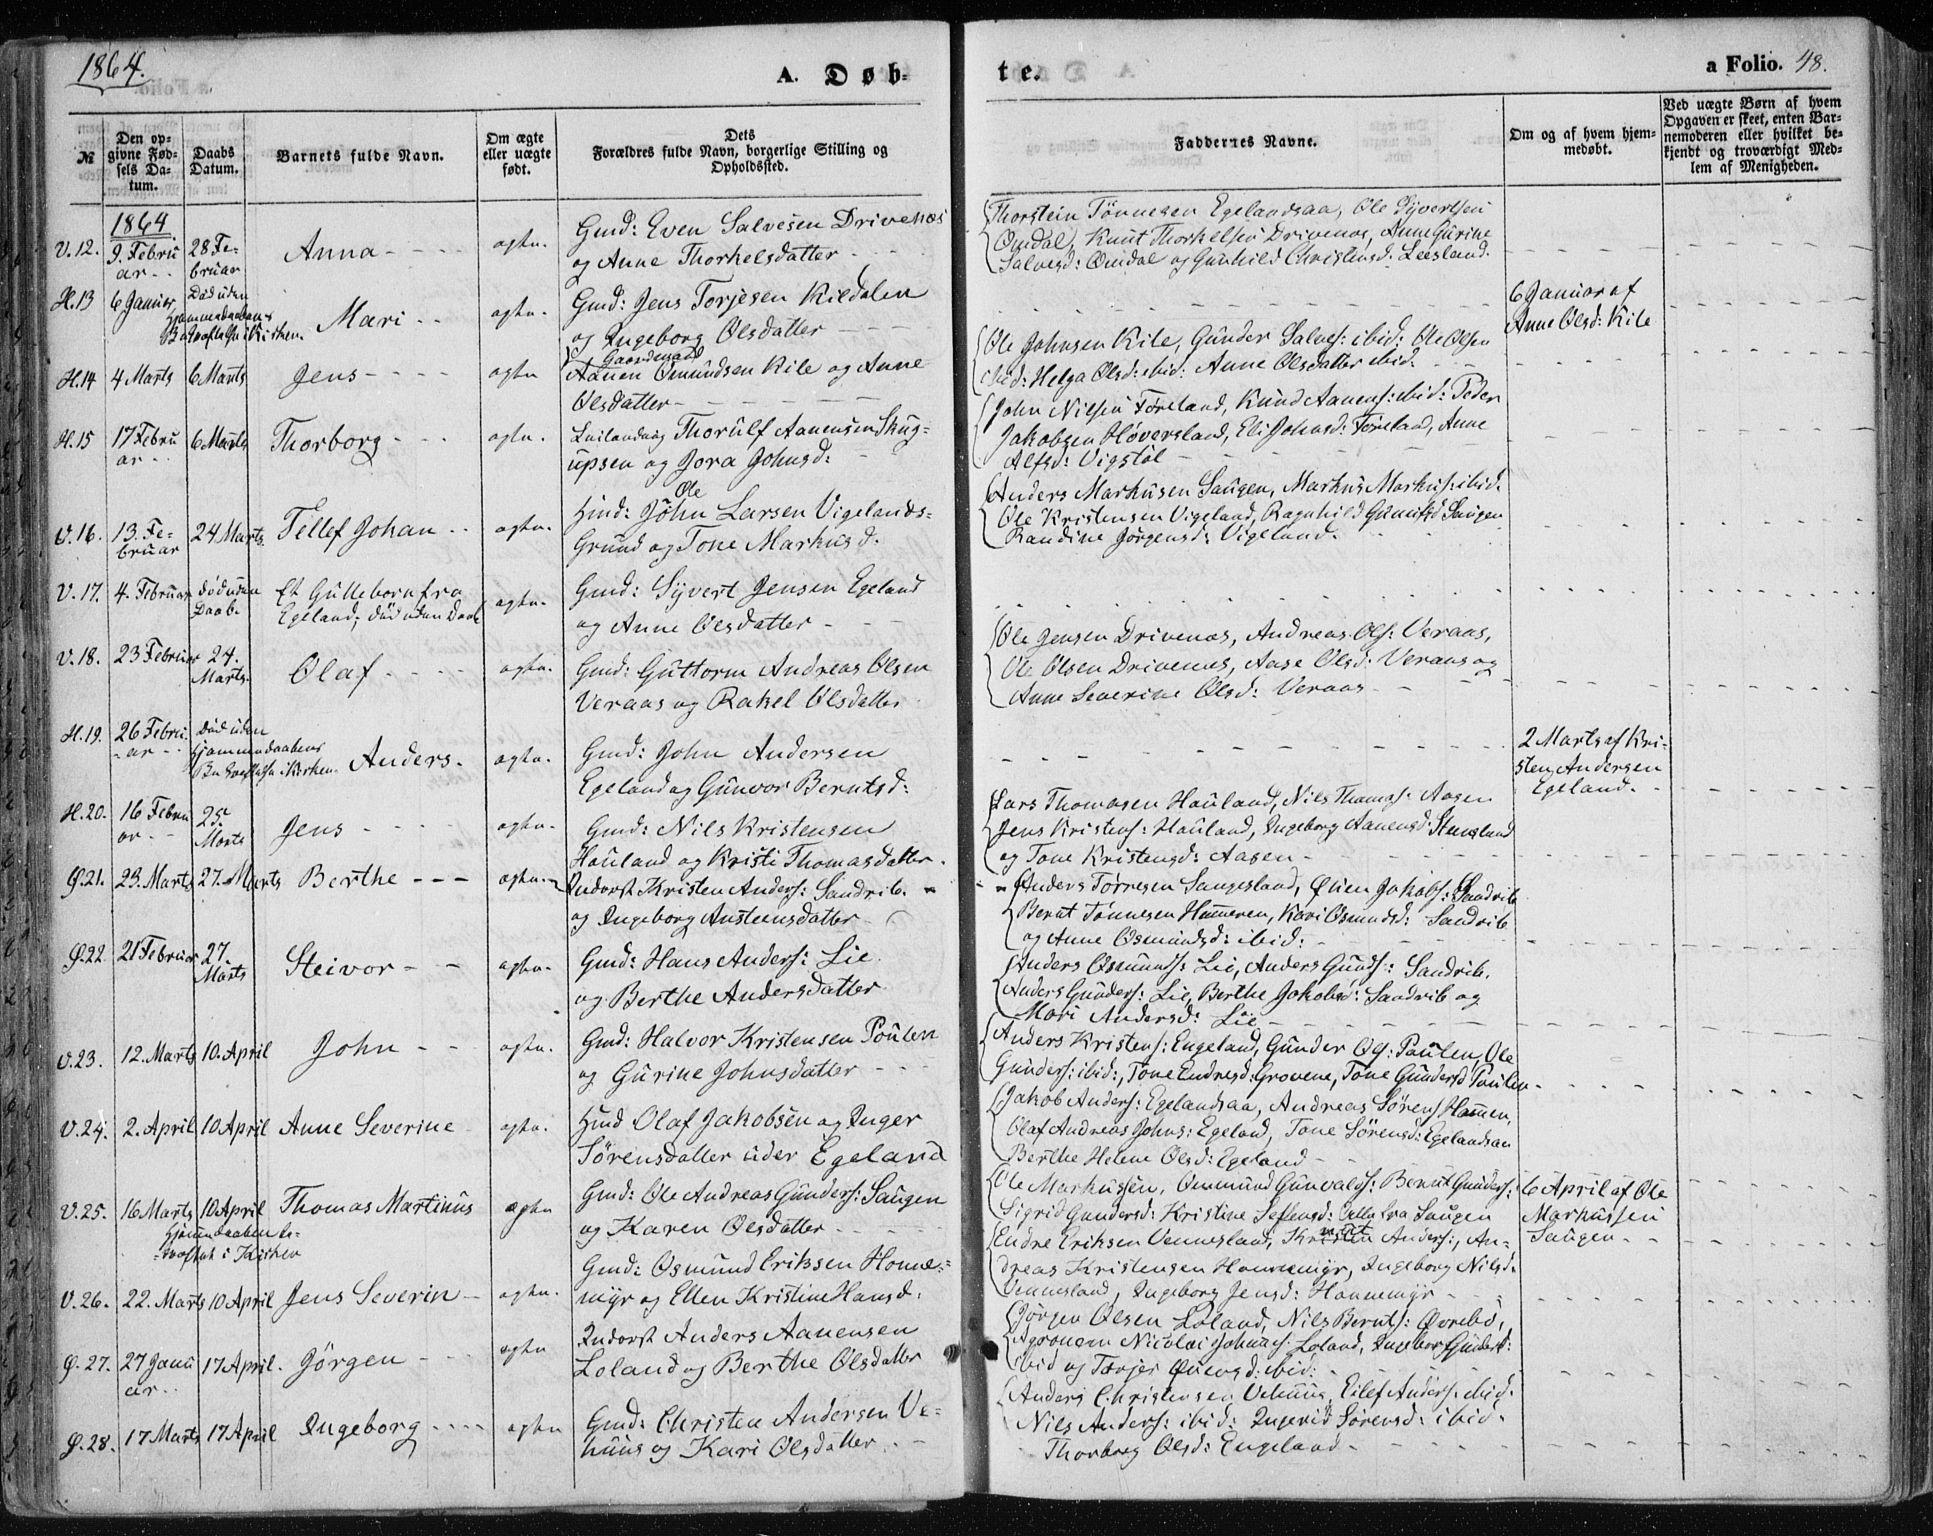 1864.
A. Døb-
te.
a Folio. 48.
№
Den op-
givne Fød-
sels Da-
tum.
Daabs
Datum.
Barnets fulde Navn.
Om ægte
eller uægte
født.
Dets
Forældres fulde Navn, borgerlige Stilling og
Opholdssted.
Faddernes Navne.
Om og af hvem hjem-
medøbt.
Ved uægte Børn af hvem
Opgaven er skeet, enten Bar-
nemoderen eller hvilket be-
kjendt og troværdigt Med-
lem af Menigheden.
1864
V.12.
9. Febru
ar
28 Fe-
bruar
Anna
ægte.
Gmd: Even Salvesen Drivenes
og Anne Thorkelsdatter
Thorstein Tönnesen Egelandsaa, Ole Syvertsen
Omdal, Knut Thorkelsen Drivenes, Anne Gurine
Salvesd: Omdal og Gunhild Christensd: Leesland.
H.13
6 Januar
Död uden
Hjemmedaabens
i Kirken.
Mari
ægte.
Gmd: Jens Torjesen Kildalen
og Ingeborg Olsdatter
6 Januar af
Anne Olsd: Kile
H.14
4 Marts
6 Marts
Jens
ægte
Gaardmand
Aanen Omundsen Kile og Anne
Olsdatter
Ole Johnsen Kile, Gunder Salves: ibid: Ole Olsen
ibid: Helga Olsd: ibid: Anne Olsdatter ibid.
H.15
17 Febru
ar
6 Marts
Thorborg
ægte.
Thorulf Aanensen Skug-
upsen og Jora Johnsd:
John Nilsen Föreland, Knud Aanens: ibid: Peder
Jakobsen Höversland, Eli Johnsd: Föreland, Anne
Alfsd: Vigstöl
V.16.
13. Fe-
bruar
24 Marts.
Tellef Johan
ægte.
Ole
Hmd: John Larsen Vigelands-
Grund og Tone Markusd.
Anders Markusen Saugen, Markus Markus: ibid.
Ole Kristensen Vigeland, Ragnhild Saugen
Randine Jörgensd: Vigeland.
V.17.
4. Februar
död uden
Daab.
Et Gutteborn fra
Egeland, död uden Daab
ægte.
Gmd: Syvert Jensen Egeland
og Anne Olsdatter
V.18.
23 Februar
24.
Marts.
Olaf
ægte.
Gmd: Guttorm Andreas Olsen
Veraas og Rakel Olsdatter
Ole Jensen Drivenes, Andreas Ols: Veraas,
Ole Olsen Drivenes, Aase Olsd: Veraas og
Anne Severine Olsd: Veraas
H.19.
26 Febru-
ar
Död uden
Hjemmedaabens
i Kirken.
Anders.
ægte.
Gmd: John Andersen
Egeland og Gunvor Berntsd:
2 Marts af Kri-
sten Andersen
Egeland.
H.20.
16 Febru
ar
25.
Marts
Jens
ægte.
Gmd: Nils Kristensen
Hauland og Kristi Thomasdatter.
Lars Thomasen Hauland, Nils Thomas: Aasen
Jens Kristens: Hauland, Ingeborg Aanensd: Stensland
og Tone Kristensd: Aasen
Ø.21.
23. Marts
27. Marts
Berthe
ægte.
Inderst Kristen Anders: Sandrib.
og Ingeborg Austeensdatter
Anders Törresen Saugesland, Øuen Jakobs: Sandrib
Bernt Tönnesen Hammeren, Kari Osmundsd: Sandrib
og Anne Osmundsd: ibid:
Ø.22.
21 Februar
27.
Marts
Steivor
ægte.
Gmd: Hans Anders: Lie
og Berthe Andersdatter
Anders Osmunds: Lie, Anders Gunds: Sandrib.
Anders Gunders: Lie, Berthe Jakobsd: Sandrib og
Mari Andersd: Lie
V.23.
12. Marts
10. April
John
ægte.
Gmd: Halvor Kristensen Poulen
og Gurine Johnsdatter
Anders Kristens: Engeland, Gunder Ols: Paulen, Ole
Gunders: ibid:, Tone Endresd: Grovene, Tone Gundersd Poulen
V.24.
2. April
10 April
Anne Severine
ægte.
Hmd Olaf Jakobsen og Inger
Sörensdatter under Egeland
Jakob Anders: Egelandsaa, Andreas Sörens Hommen,
Olaf Andreas Johns: Egeland, Tone Sörensd: Egelandsaa
Berthe Helene Olsd: Egeland
V.25.
16 Marts
10 April
Hjemmedaaben be-
kræftet i Kirken
Thomas Martinus
ægte
Gmd: Ole Andreas Gunders: Saugen
og Karen Olsdatter
Ole Markussen, Osmund Gunvalds: Bernt Gunders:
Sigrid Gundersd: Kristine alle fra Saugen
6 April af Ole
Markussen
Saugen
V.26.
22. Marts
10 April
Jens Severin
ægte.
Gmd: Osmund Eriksen Honne-
myr og Ellen Kristine Hansd:
Endre Eriksen Vennesland, Kristen Anders:, An-
dreas Kristensen Honnemyr, Ingeborg Nilsd:
Vennesland, Ingeborg Jensd: Honnemyr
Ø.27.
27 Janu
ar
17 April.
Jörgen
ægte
Inderst Anders Aanensen
Loland og Berthe Olsdatter
Jörgen Olsen Loland, Nils Bernts: Øvrebö,
Agronom Nicolai Johnas: Loland, Ingeborg Gundersd:
ibid og Torjer Øuensd: ibid:
Ø.28.
17 Marts
17 April
Ingeborg
ægte
Gmd: Christen Andersen Ve-
huus og Kari Olsdatter
Anders Christensen Vehuus, Eilef Anders: ibid.
Nils Anders: ibid: Ingerid Sörensd: ibid.
Thorborg Olsd: Engeland